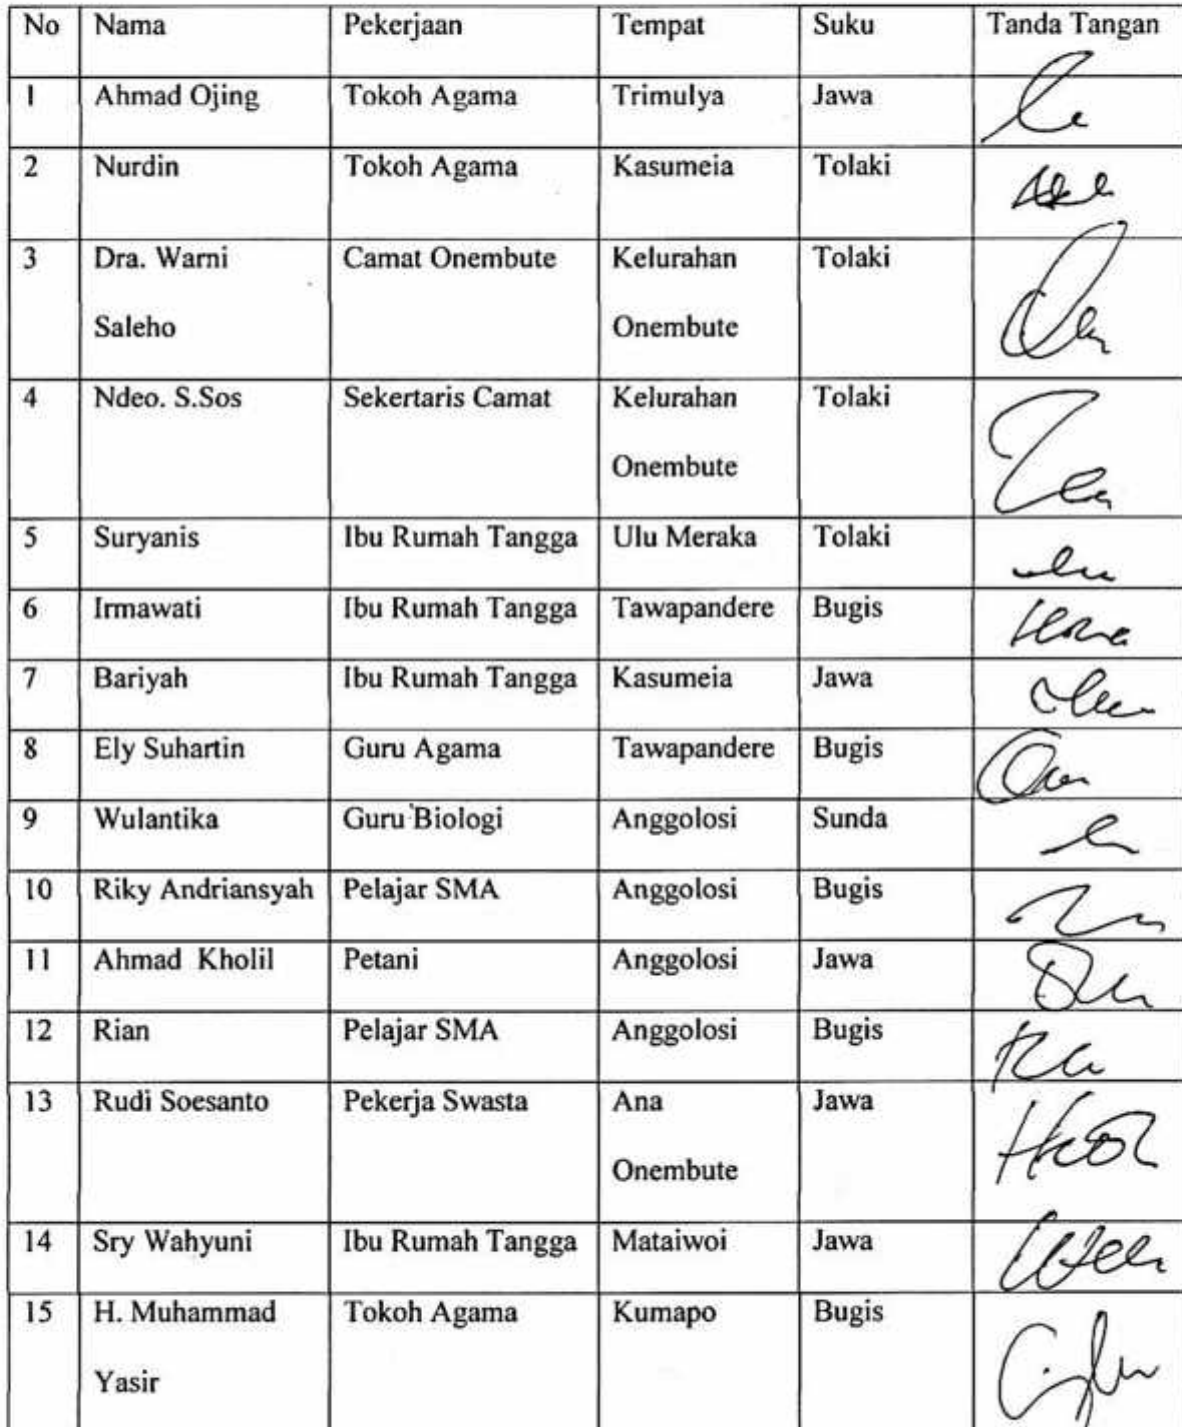 No Nama Pekerjaan Tempat Suku Tanda Tangan
1 Ahmad Ojing Tokoh Agama Trimulya Jawa
2 Nurdin Tokoh Agama Kasumeia Tolaki
3 Dra. Warni Camat Onembute Kelurahan Tolaki
Saleho Onembute
4 Ndeo. S.Sos Sekertaris Camat Kelurahan Tolaki
Onembute
5 Suryanis Ibu Rumah Tangga Ulu Meraka Tolaki
6 Irmawati Ibu Rumah Tangga Tawapandere Bugis
7 Bariyah Ibu Rumah Tangga Kasumeia Jawa
8 Ely Suhartin Guru Agama Tawapandere Bugis
9 Wulantika Guru Biologi Anggolosi Sunda
10 Riky Andriansyah Pelajar SMA Anggolosi Bugis
11 Ahmad Kholil Petani Anggolosi Jawa
12 Rian Pelajar SMA Anggolosi Bugis
13 Rudi Soesanto Pekerja Swasta Ana Jawa
Onembute
14 Sry Wahyuni Ibu Rumah Tangga Mataiwoi Jawa
15 H. Muhammad Tokoh Agama Kumapo Bugis
Yasir